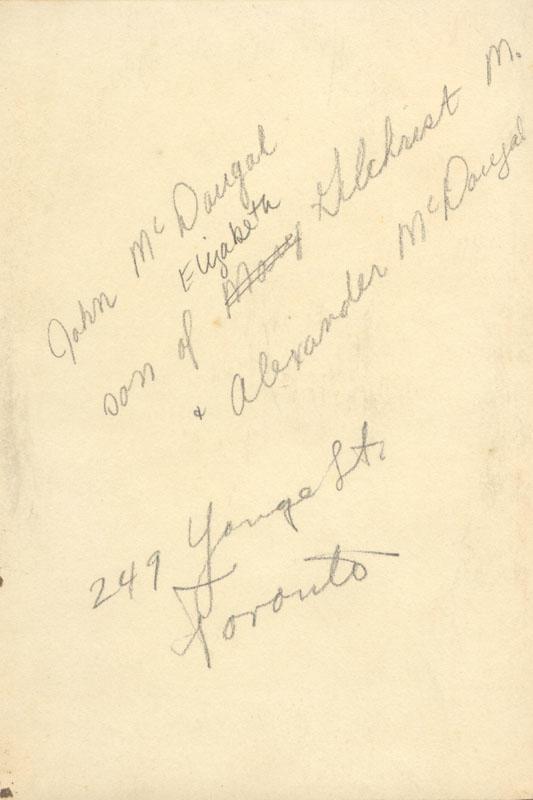 John McDougal
Elizabeth
son of Mary Gilchrist M.
& Alexander McDougal
249 Yonge St.
Toronto